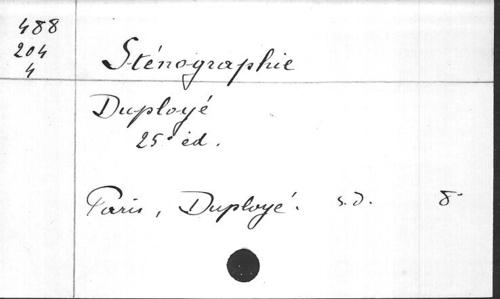 488
204
4
Sténographie
Duployé
25e éd.
Paris, Duployé. s.d. 8°